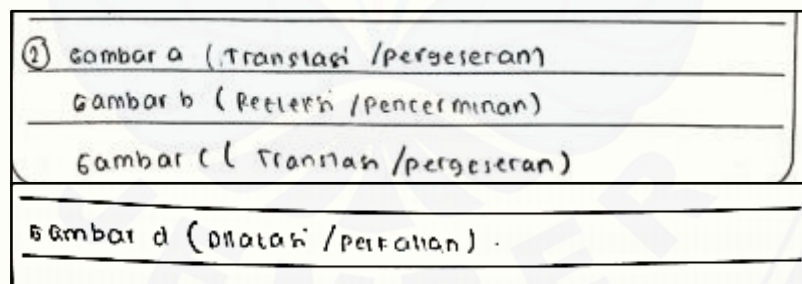 ② Gambar a (Translasi /pergeseran)
Gambar b (Refleksi /pencerminan)
Gambar c ( Translasi /pergeseran)
Gambar d (Dilatasi /perkalian).